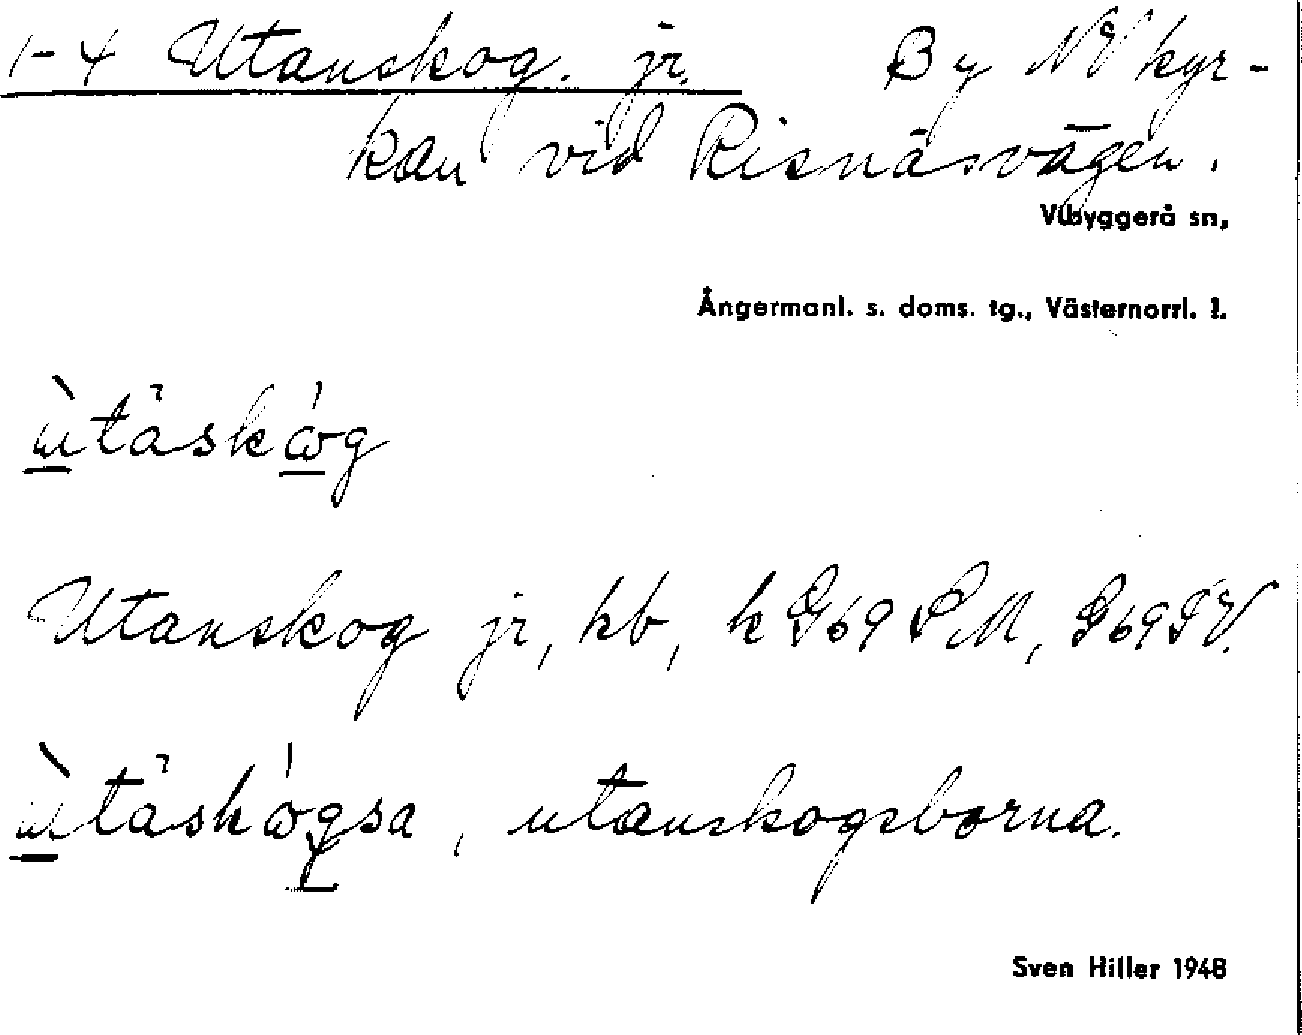 1-4 Utanskog. jr. By NV kyr-
kan vid Risnäsvägen.
Vibyggerå sn,
Ångermanl. s. doms. tg., Västernorrl. l.
ùtäskóg
Utanskog jr, hb, k G69SM, G69SV.
ùtäskógsa, utanskogsborna.
Sven Hiller 1948